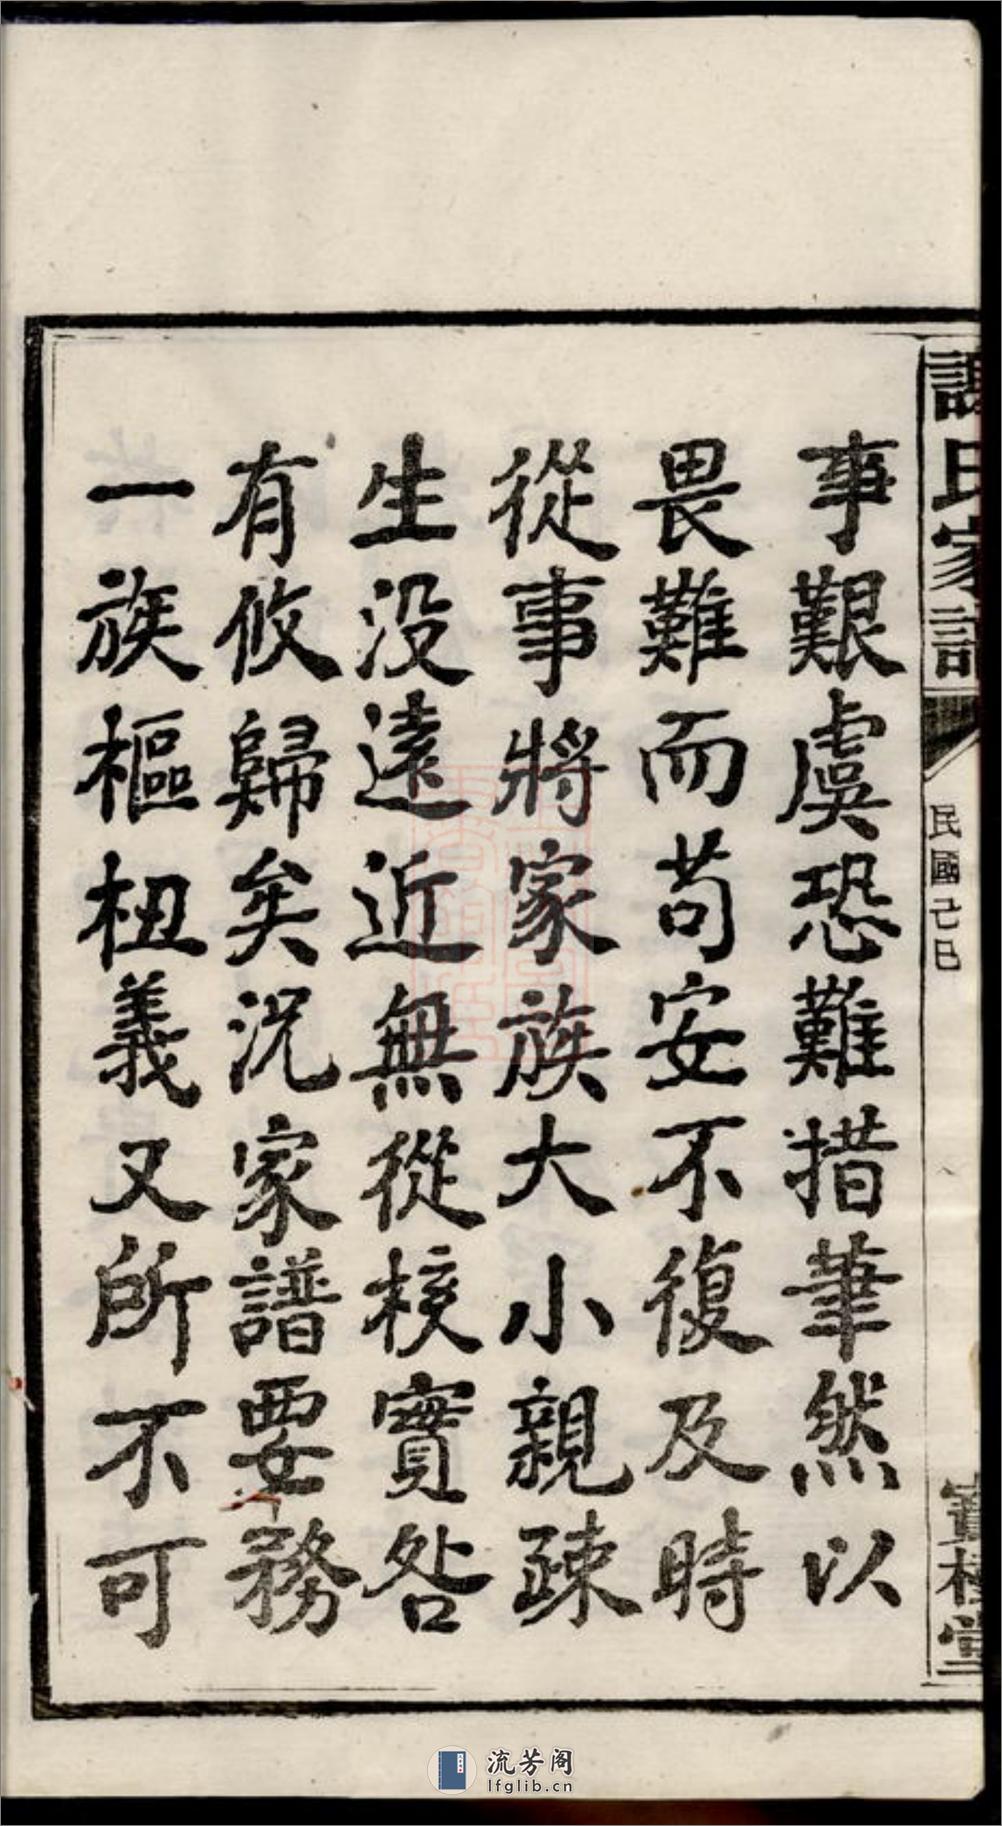 事艱虞恐難措筆然以
畏難而苟安不復及時
從事將家族大小親疎
生没遠近無從核實咎
有攸歸矣況家譜要務
一族樞杻義又所不可
氏家譜
民國己巳
寶樹堂
流芳阁
lfglib.cn